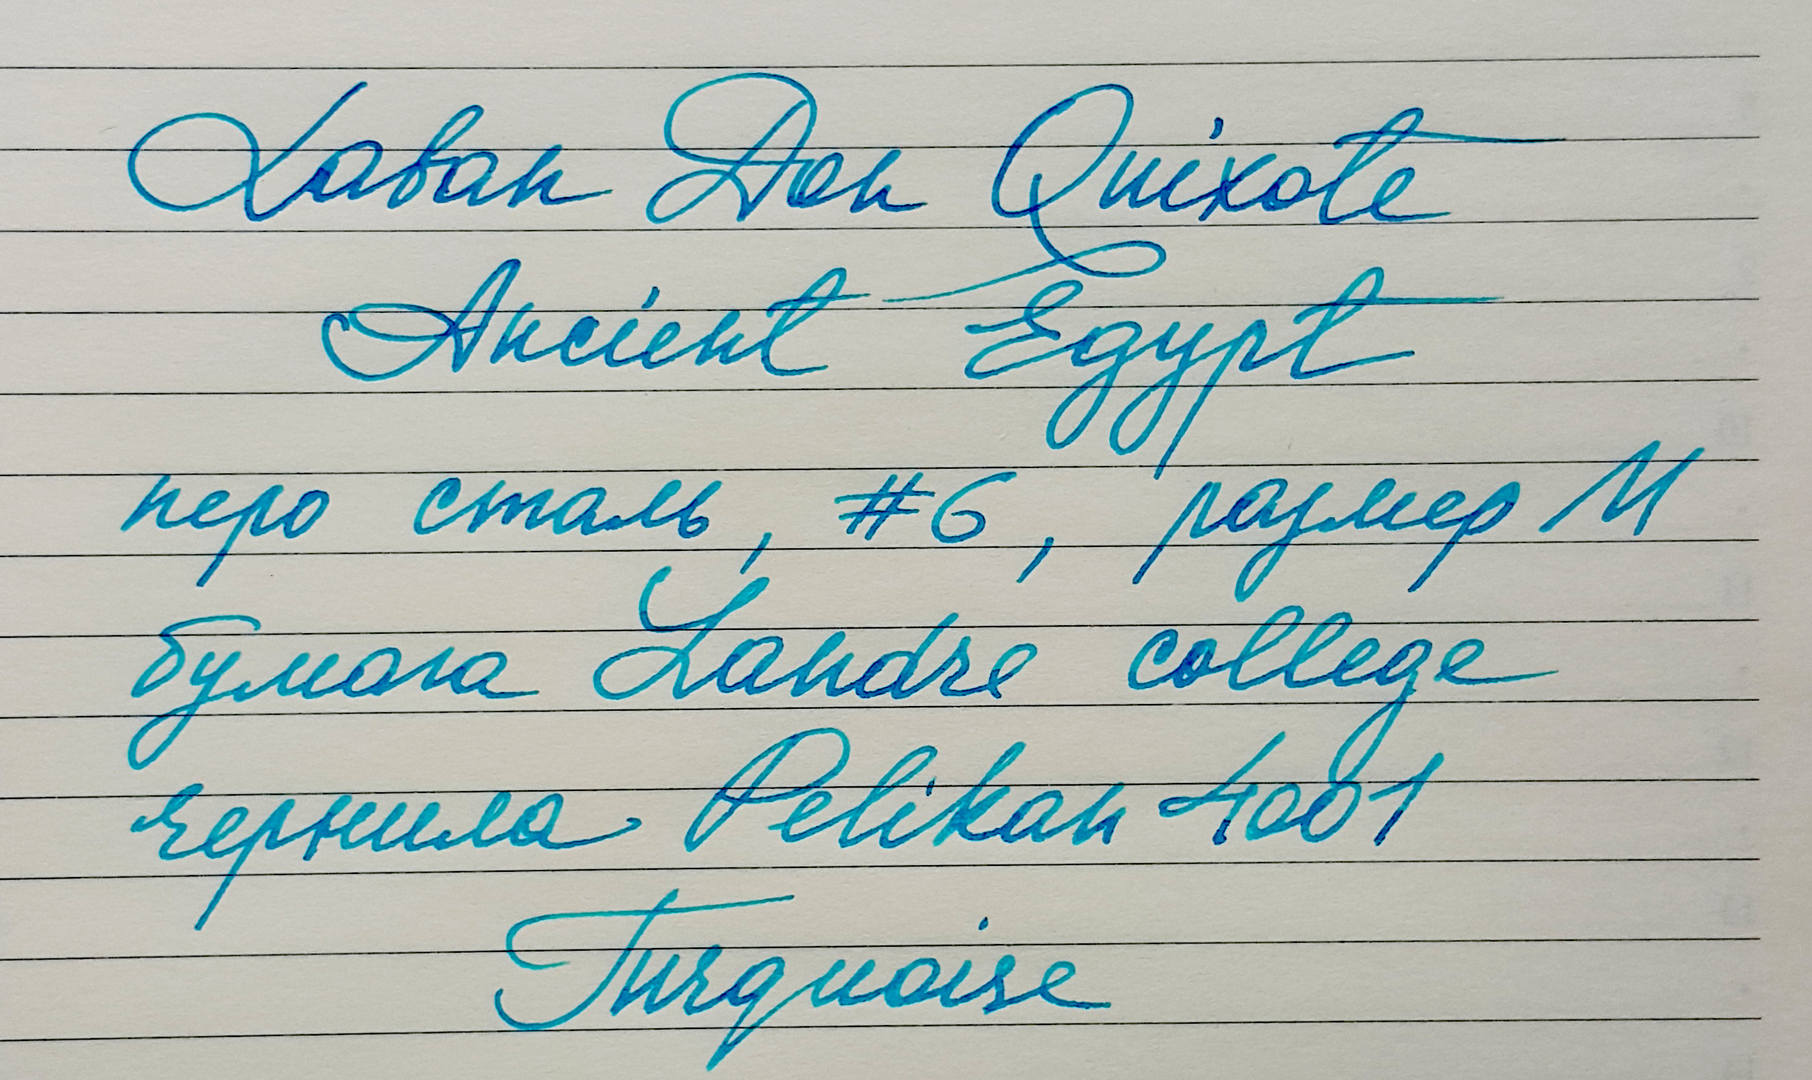 Laban Don Quixote
Ancient Egypt
перо сталь, #6, размер M
бумага Landre college
чернила Pelikan 4001
Turquoise